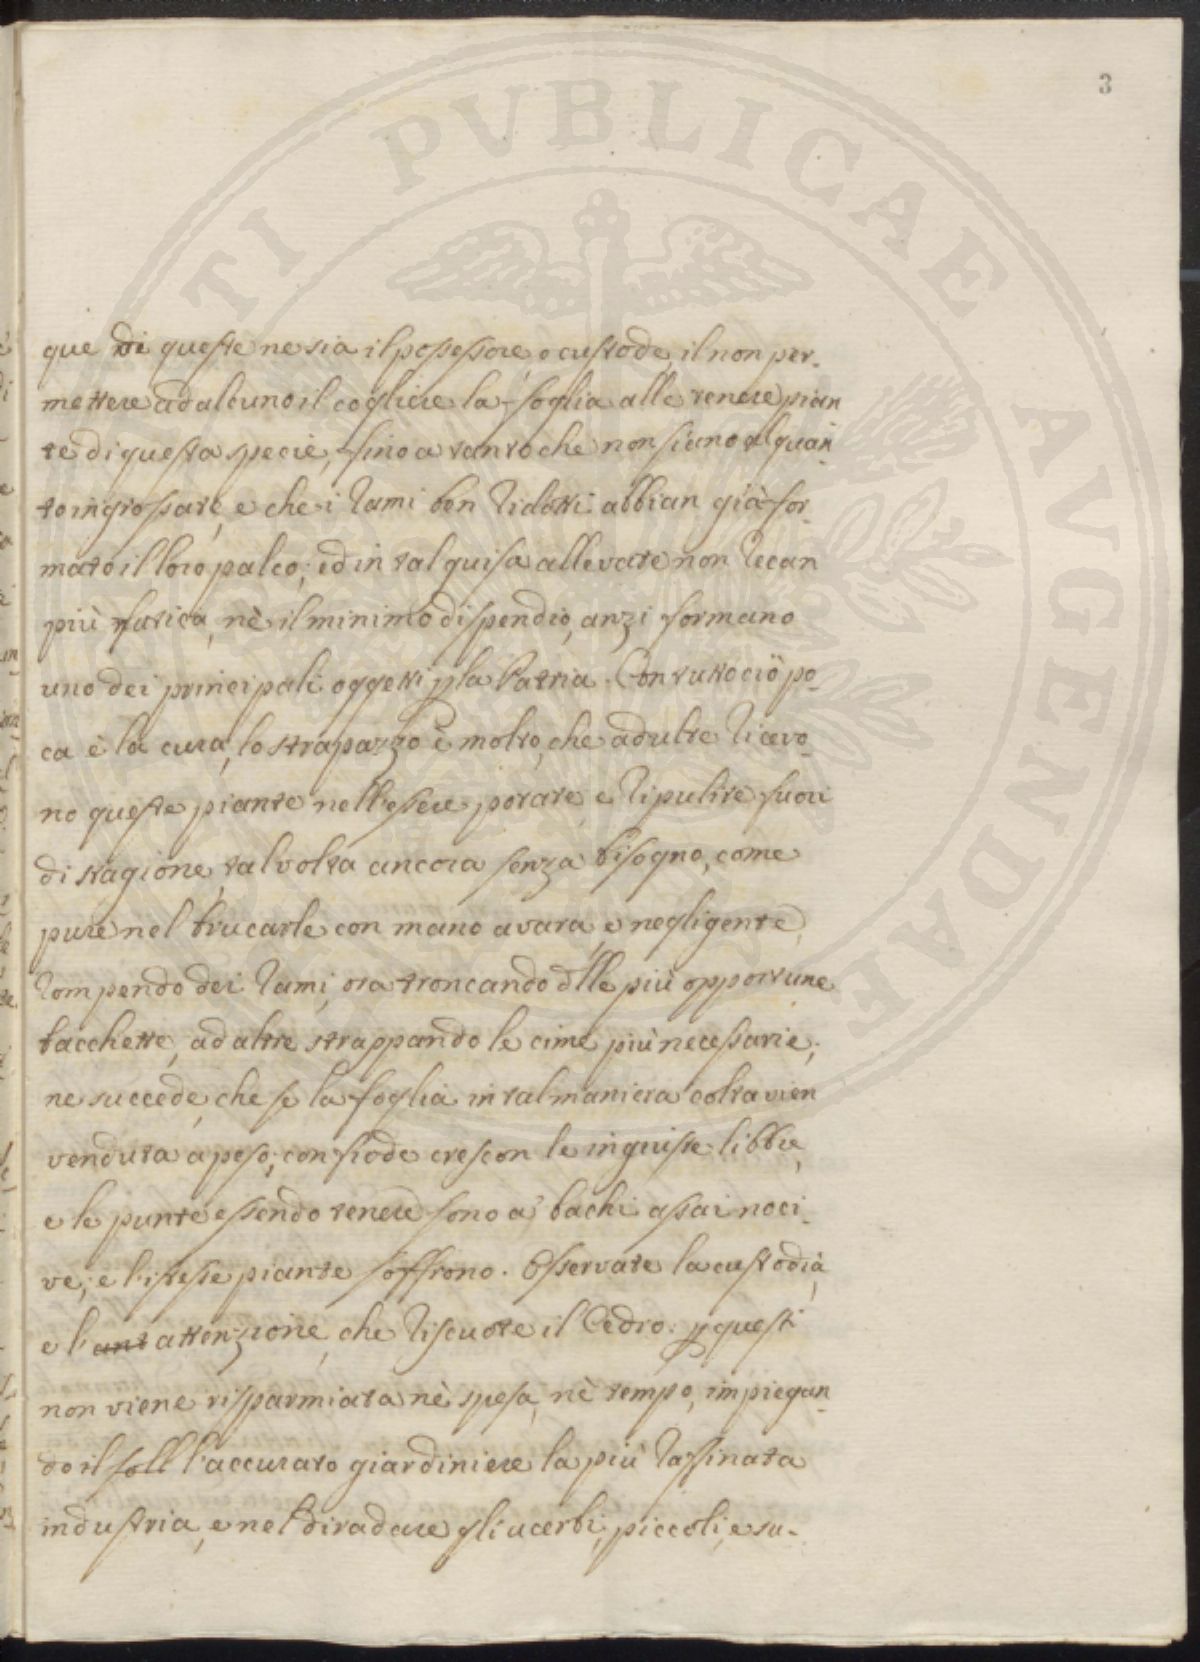 3
que di queste ne sia il possessore, o custode, il non per-
mettere ad alcuno il cogliere la foglia alle tenere pian
te di questa specie, fino a tanto che non siano alquan-
to ingrossate, e che i rami ben ridotti abbian già for-
mato il loro palco; ed in tal guisa allevate non recan
più fatica, nè il minimo dispendio, anzi formano
uno dei principali oggetti p la Patria. Con tutto ciò po-
ca è la cura, lo strapazzo è molto, che adulte ricevo-
no queste piante nell'essere potate, e ripulite fuori
di stagione, talvolta ancora senza bisogno, come
pure nel brucarle con mano avara, e negligente,
rompendo dei rami, ora troncando dlle più opportune
bacchette, ad altre strappando le cime più necessarie;
ne succede, che se la foglia in tal maniera colta vien
venduta a peso, con frode crescon le ingiuste libbre,
e le punte essendo tenere sono a' bachi assai noci-
ve; e l'istesse piante soffrono. Osservate la custodia,
e l'ant attenzione, che riscuote il Cedro: p questi
non viene risparmiata nè spesa, nè tempo, impiegan-
do il soll l'accurato giardiniere la più raffinata
industria, e nel diradare gli acerbi, piccoli, e su-
PUBLICAE AUGENDAE